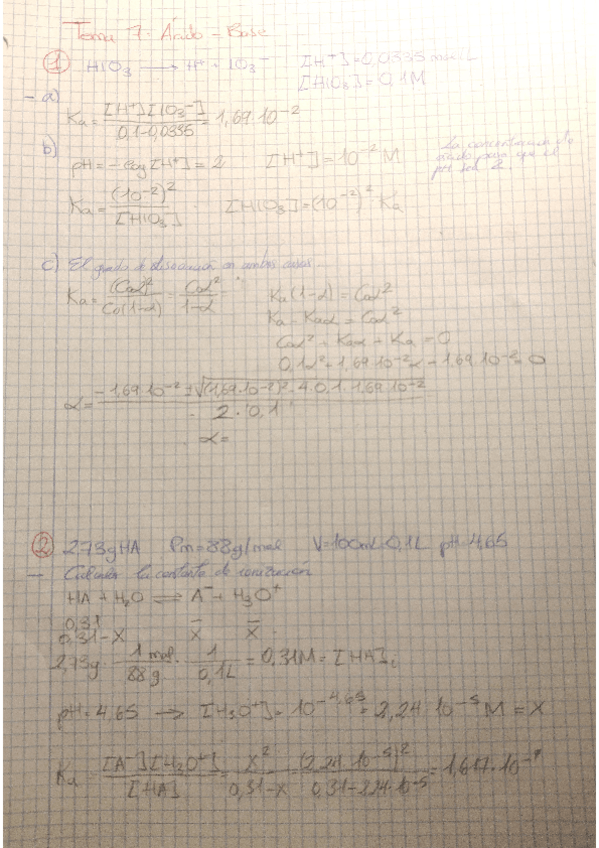 Tema 7. Ácido - Base
① HIO₃ ⟶ H⁺ + IO₃⁻ [H⁺] = 0,0335 mol/L
[HIO₃] = 0,1M
- a)
Ka = [H⁺][IO₃⁻] / 0,1-0,0335 = 1,69·10⁻²
b)
pH = -log[H⁺] = 2 [H⁺] = 10⁻² M
La concentración de
ácido para que el
pH sea 2.
Ka = (10⁻²)² / [HIO₃] [HIO₃] = (10⁻²)² Ka
c) El grado de disociación en ambos casos.
Ka = (Coα)² / Co(1-α) = Coα² / 1-α
Ka(1-α) = Coα²
Ka - Kaα = Coα²
Coα² + Kaα + Ka = 0
0,1α² + 1,69·10⁻²α - 1,69·10⁻² = 0
α = -1,69·10⁻² ± √(1,69·10⁻²)² - 4·0,1·1,69·10⁻² / 2·0,1
α =
② 2,73g HA Pm = 88g/mol V = 100mL 0,1L pH = 4,65
- Calcular la constante de ionización
HA + H₂O ⇌ A⁻ + H₃O⁺
0,31 - -
0,31-X X X
2,73g · 1 mol / 88g · 1 / 0,1L = 0,31M = [HA]ᵢ
pH = 4,65 → [H₃O⁺] = 10⁻⁴'⁶⁵ = 2,24·10⁻⁵ M = X
Ka = [A⁻][H₃O⁺] / [HA] = X² / 0,31-X = (2,24·10⁻⁵)² / 0,31-2,24·10⁻⁵ = 1,617·10⁻⁹